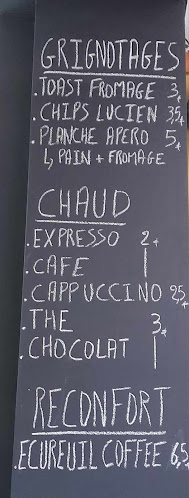 GRIGNOTAGES
.TOAST FROMAGE 3,
.CHIPS LUCIEN 3,5,
.PLANCHE APERO 5,
↳ PAIN + FROMAGE
CHAUD
.EXPRESSO 2,
.CAFE |
.CAPPUCCINO 2,5,
.THE 3,
.CHOCOLAT |
RECONFORT
.ECUREUIL COFFEE 6,5